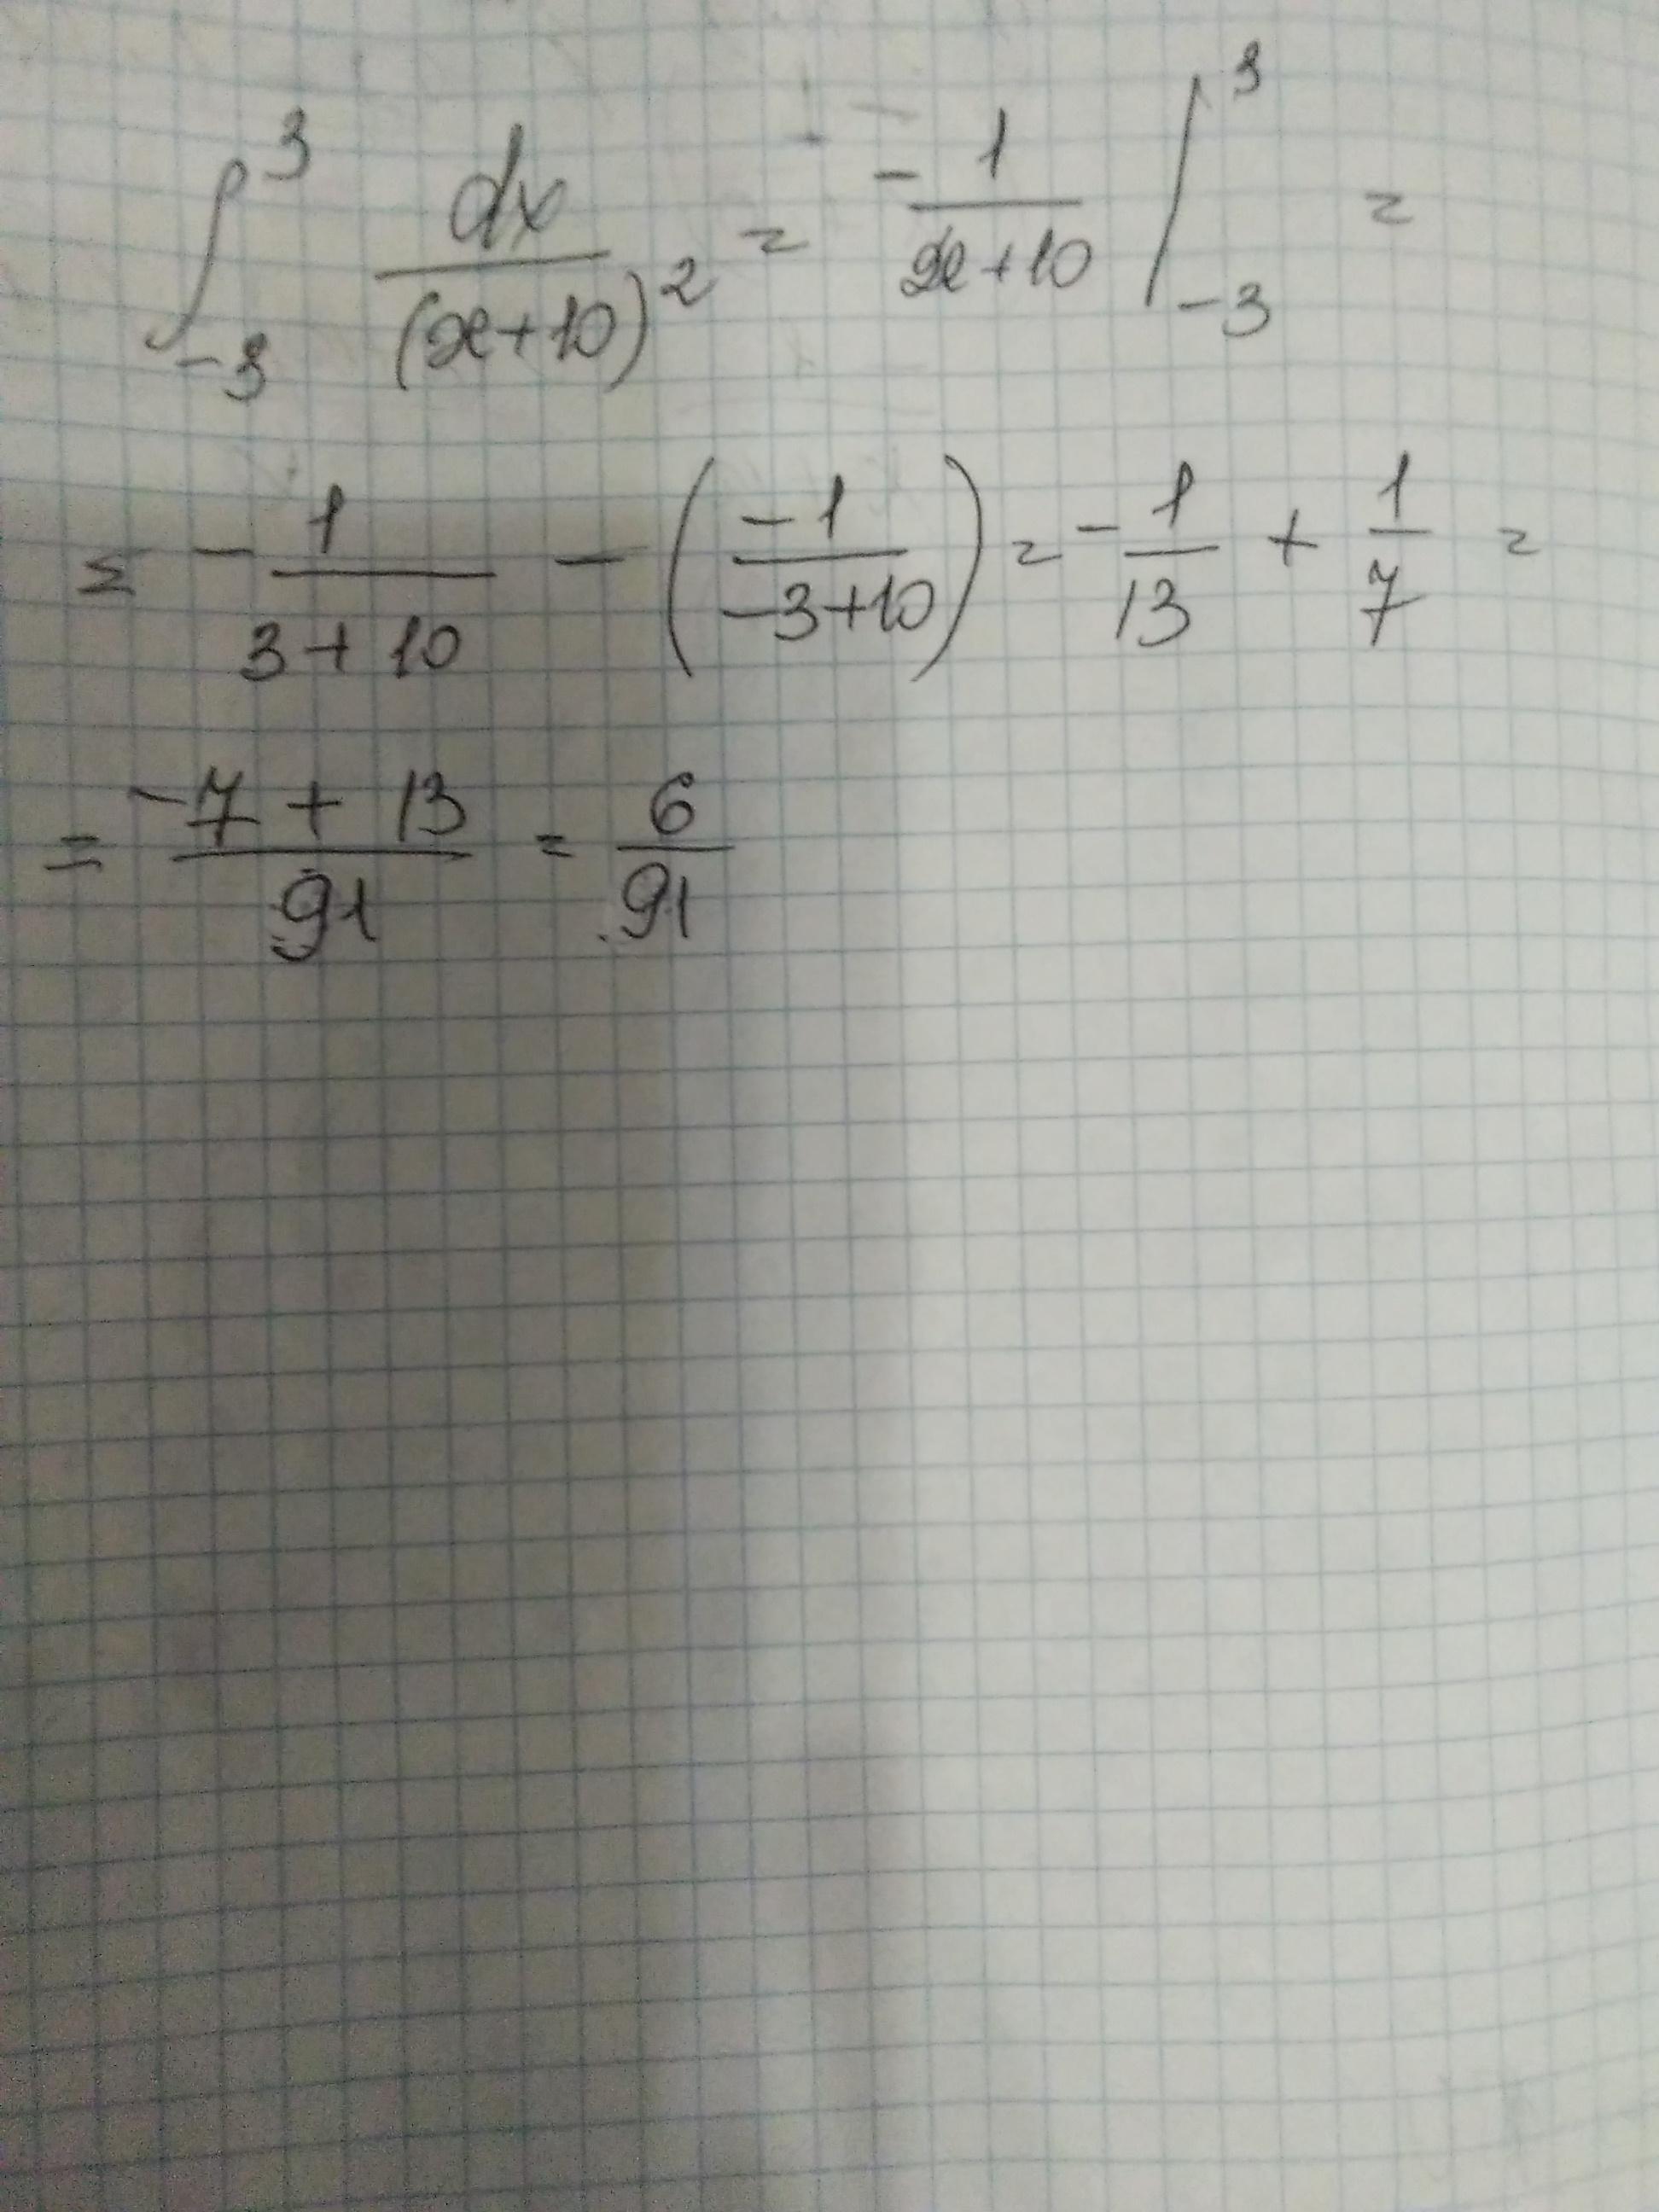 ∫₋₃³ dx/(x+10)² = -1/(x+10) |₋₃³ =
= -1/(3+10) - (-1/(-3+10)) = -1/13 + 1/7 =
= (-7+13)/91 = 6/91